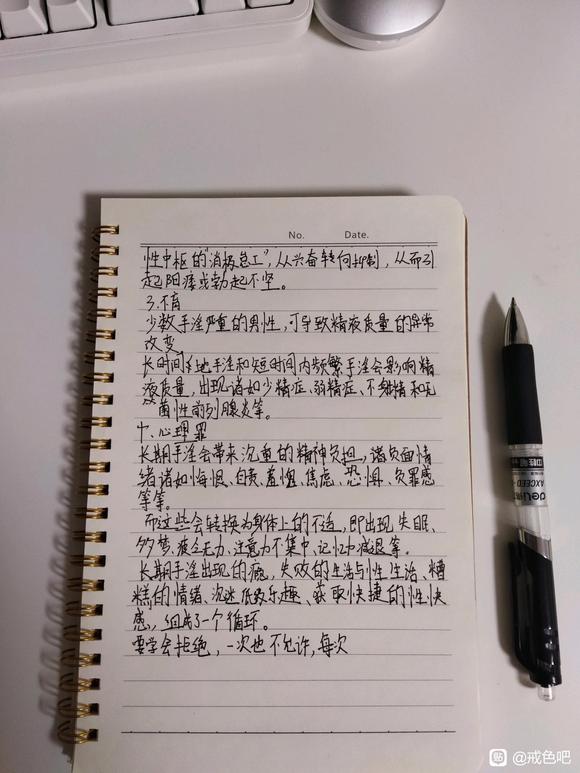 No. Date.
性中枢的"消极怠工",从兴奋转向抑制,从而引
起阳痿或勃起不坚。
3.不育
少数手淫严重的男性,可导致精液质量的异常
改变
长时间地手淫和短时间内频繁手淫会影响精
液质量,出现诸如少精症、弱精症、不射精和无
菌性前列腺炎等。
十、心理罪
长期手淫会带来沉重的精神负担,诸负面情
绪诸如悔恨、自责、羞愧、焦虑、恐惧、负罪感
等等。
而这些会转换为身体上的不适,即出现失眠、
多梦、疲乏无力、注意力不集中、记忆力减退等。
长期手淫出现的瘾,失败的生活与性生活、糟
糕的情绪、沉迷低级乐趣、获取快捷的性快
感,组成了一个循环。
要学会拒绝,一次也不允许,每次
deli
AXCEED
贴 @戒色吧